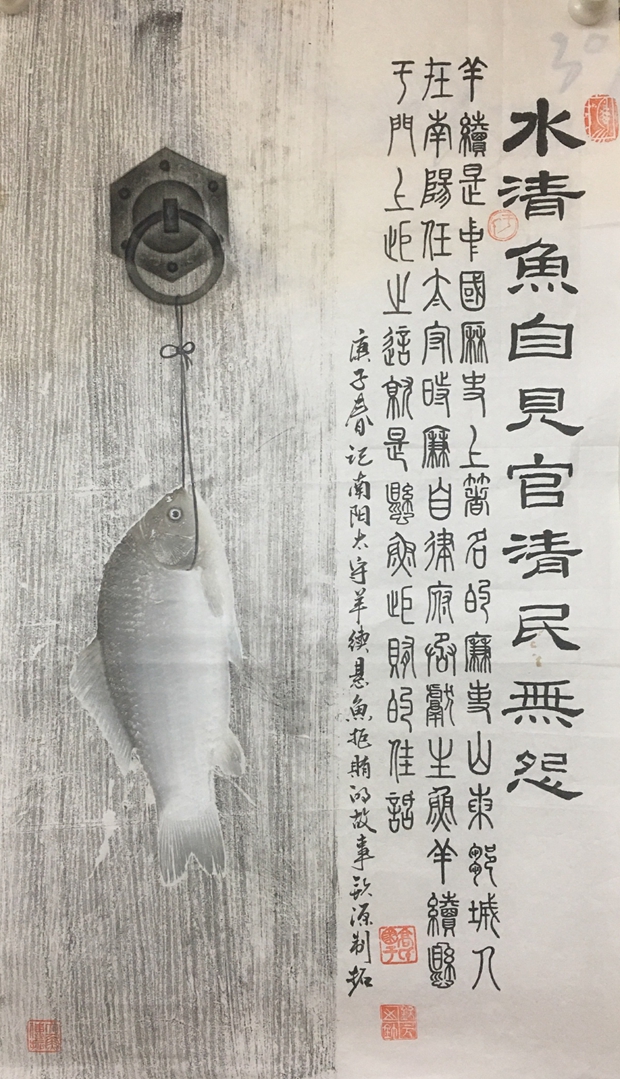 水清魚自見官清民無怨
羊續是中國廉吏上著名的廉吏山東鄒城人
在南陽任太守時廉自律府丞獻生魚羊續懸
于門上拒之這就是懸魚拒賄的佳話
庚子春记南阳太守羊续悬鱼拒贿的故事 源制拓